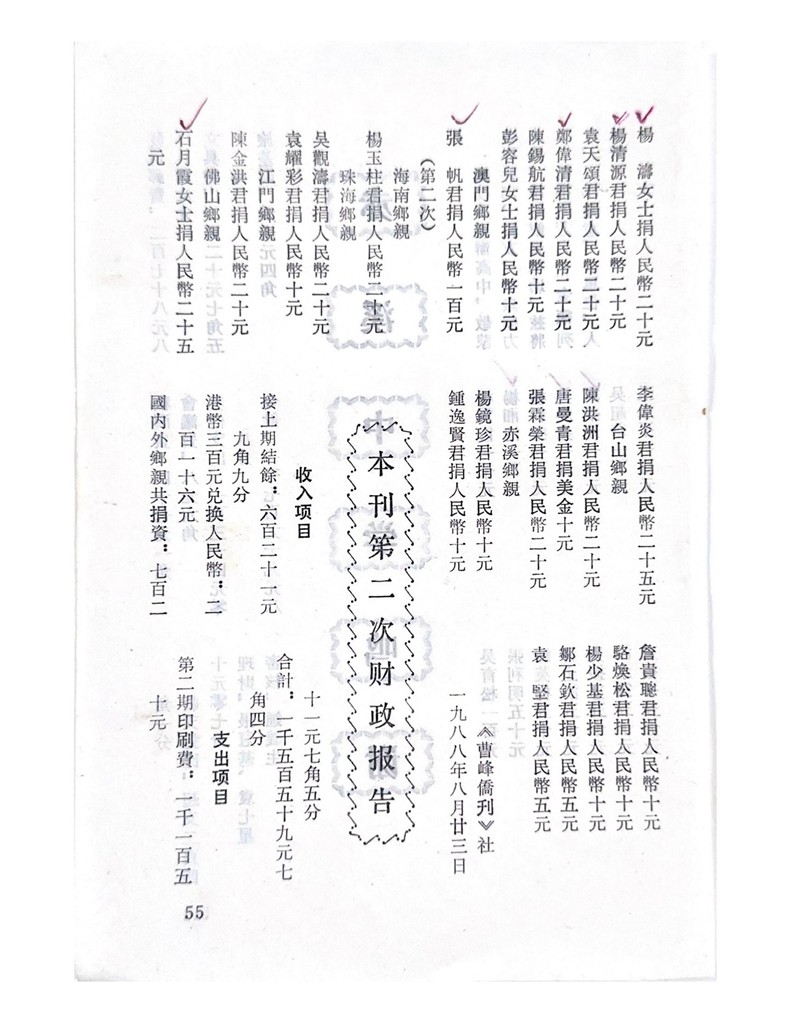 楊　濤女士捐人民幣二十元
楊清源君捐人民幣二十元
袁天頌君捐人民幣二十元
鄭偉清君捐人民幣二十元
陳錫航君捐人民幣十元
彭容兒女士捐人民幣十元
澳門鄉親
張　帆君捐人民幣一百元
（第二次）
海南鄉親
楊玉柱君捐人民幣二十元
珠海鄉親
吳觀濤君捐人民幣二十元
袁耀彩君捐人民幣十元
江門鄉親
陳金洪君捐人民幣二十元
佛山鄉親
石月霞女士捐人民幣二十五
元
李偉炎君捐人民幣二十五元
台山鄉親
陳洪洲君捐人民幣二十元
唐曼青君捐美金十元
張霖榮君捐人民幣二十元
赤溪鄉親
楊鏡珍君捐人民幣十元
鍾逸賢君捐人民幣十元
詹貴聰君捐人民幣十元
駱煥松君捐人民幣十元
楊少基君捐人民幣十元
鄒石欽君捐人民幣五元
袁　堅君捐人民幣五元
《曹峰僑刊》社
一九八八年八月廿三日
本刊第二次财政报告
收入项目
接上期結餘：六百二十一元
九角九分
港幣三百元兑换人民幣：二
百一十六元
國内外鄉親共捐資：七百二
十一元七角五分
合計：一千五百五十九元七
角四分
支出项目
第二期印刷費：一千一百五
十元
55